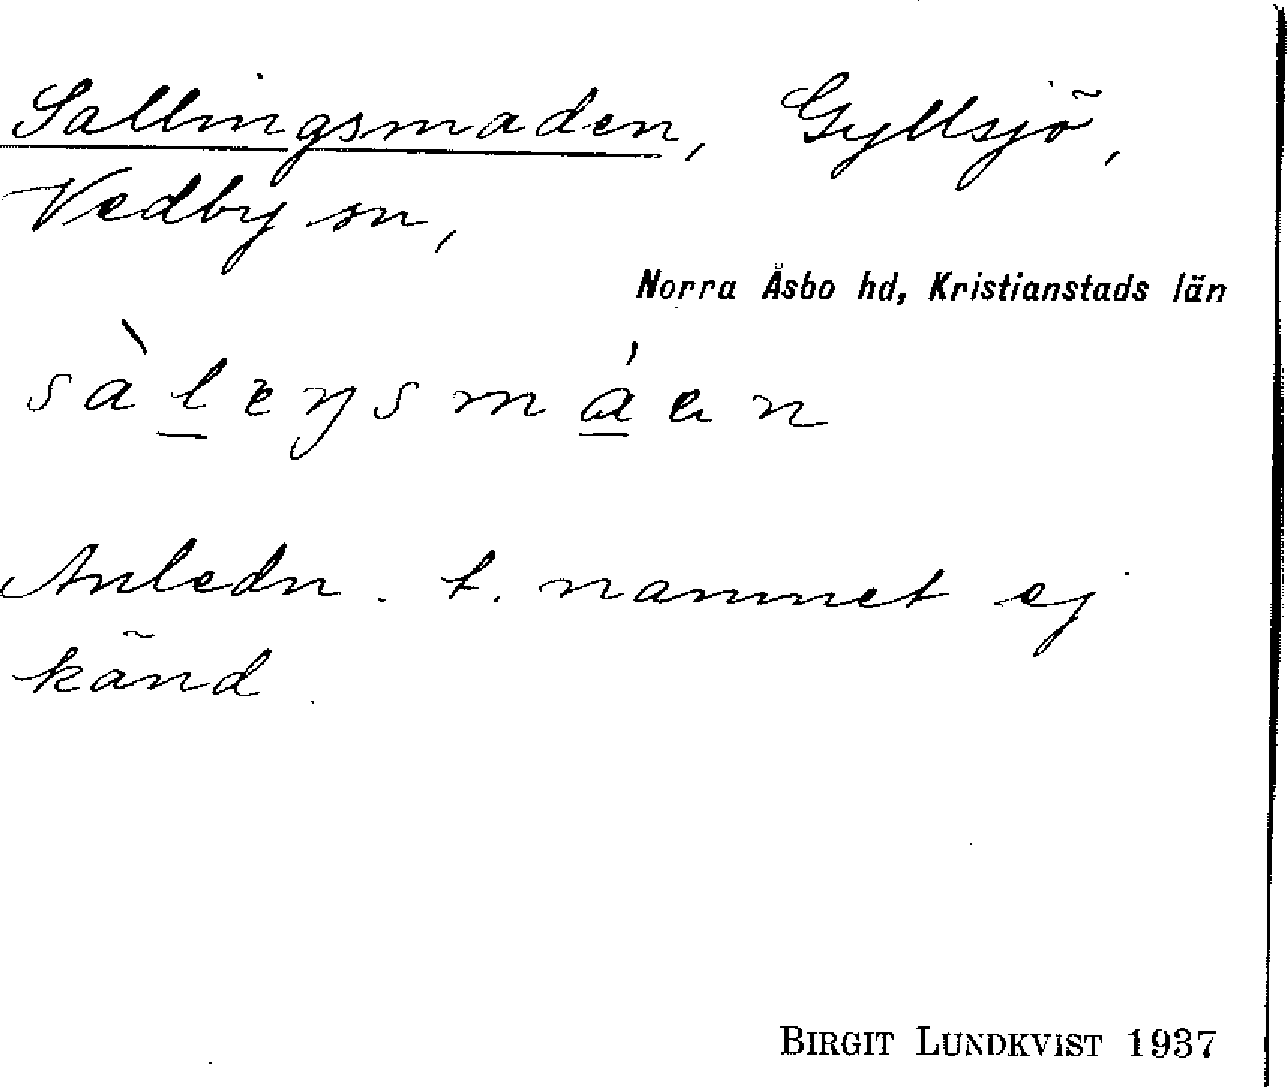 Sallingsmaden, Gyllsjö,
Vedby sn,
Norra Åsbo hd, Kristianstads län
sàleŋsmáen
Anledn. t. namnet ej
känd.
BIRGIT LUNDKVIST 1937